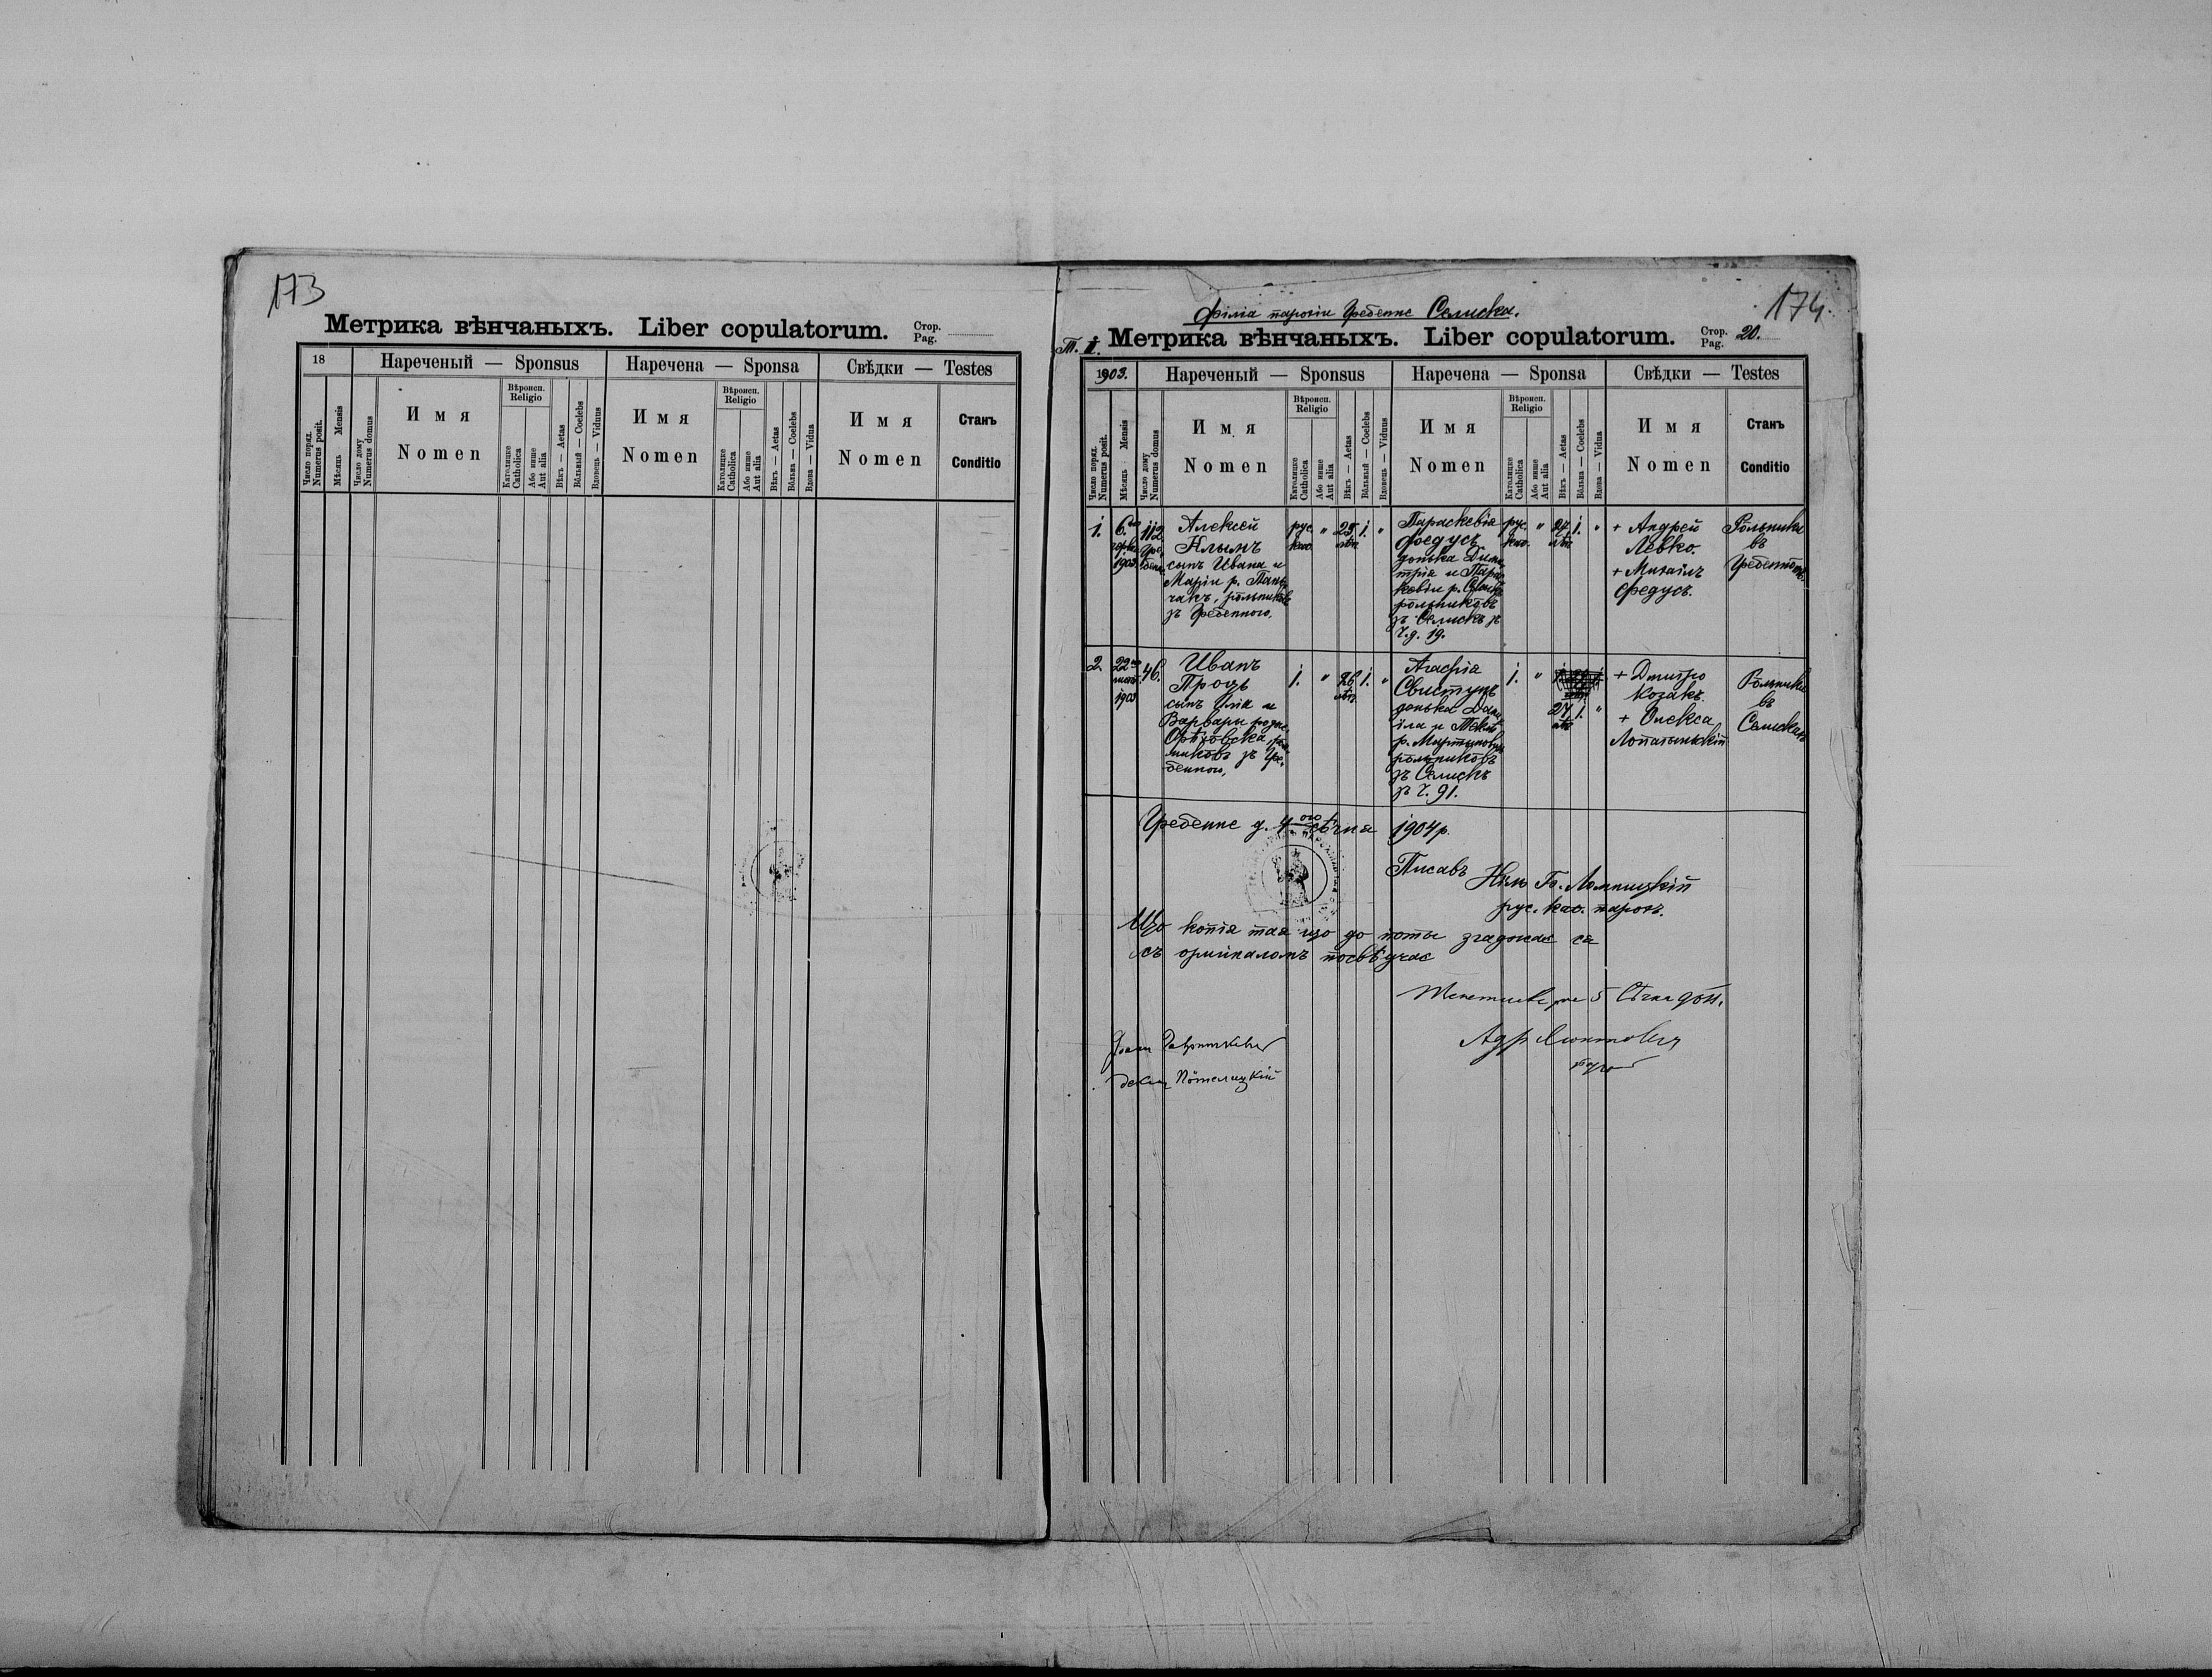 173
Метрика вѣнчаныхъ. Liber copulatorum. Стор. Pag.
18
Нареченый — Sponsus
Наречена — Sponsa
Свѣдки — Testes
Число поряд. Numerus posit.
Мѣсяць Mensis
Число дому Numerus domus
Имя
Nomen
Вѣроисп. Religio
Католицке Catholica
Або инше Aut alia
Вѣкъ — Aetas
Вôльный — Coelebs
Вдовець — Viduus
Имя
Nomen
Вѣроисп. Religio
Католицке Catholica
Або инше Aut alia
Вѣкъ — Aetas
Вôльна — Coelebs
Вдова — Vidua
Имя
Nomen
Станъ
Conditio
174.
Філіа парохіи Гребенне Селиска.
Т. II.
Метрика вѣнчаныхъ. Liber copulatorum. Стор. Pag. 20.
1903.
Нареченый — Sponsus
Наречена — Sponsa
Свѣдки — Testes
Число поряд. Numerus posit.
Мѣсяць Mensis
Число дому Numerus domus
Имя
Nomen
Вѣроисп. Religio
Католицке Catholica
Або инше Aut alia
Вѣкъ — Aetas
Вôльный — Coelebs
Вдовець — Viduus
Имя
Nomen
Вѣроисп. Religio
Католицке Catholica
Або инше Aut alia
Вѣкъ — Aetas
Вôльна — Coelebs
Вдова — Vidua
Имя
Nomen
Станъ
Conditio
1.
6.
1903.
112
Алексей
Клымъ
сынъ Ивана и
Маріи р. Пань-
чакъ, рôльникôвъ
зъ Гребенного.
рус. "
кат.
25 1. "
лѣт
Параскевія
Федусъ
донька Дими-
трія и Пара-
кевіи р.
рôльникôвъ
зъ Селискъ зъ
ч. д. 19.
рус. "
кат.
24 1. "
лѣт
+ Андрей
Левко.
+ Михаилъ
Федусъ.
Рôльники
въ
Гребеннôмъ
2.
22
1903
46.
Иванъ
Проць
сынъ Иліи и
Варвары родж.
рôль-
никôвъ зъ Гре-
бенного,
1. " 26 1. "
лѣт
Агафія
Свистунъ
донька Дани-
іла и Теклѣ
р.
рôльникôвъ
зъ Селискъ
зъ ч. 91.
1. "
27 1. "
лѣт
+ Дмитро
Козакъ.
+ Олекса
Лопатыньскій
Рôльники
въ
Селискахъ
Гребенне д. 4ого сѣчня 1904 р.
Писавъ Ніль Го. Ломницкій
рус. кат. парох.
Що копія тая що до ноты згаджає ся
съ оригіналомъ посвѣдчає
5 Сѣчня 904.
декан Пôтелицкій